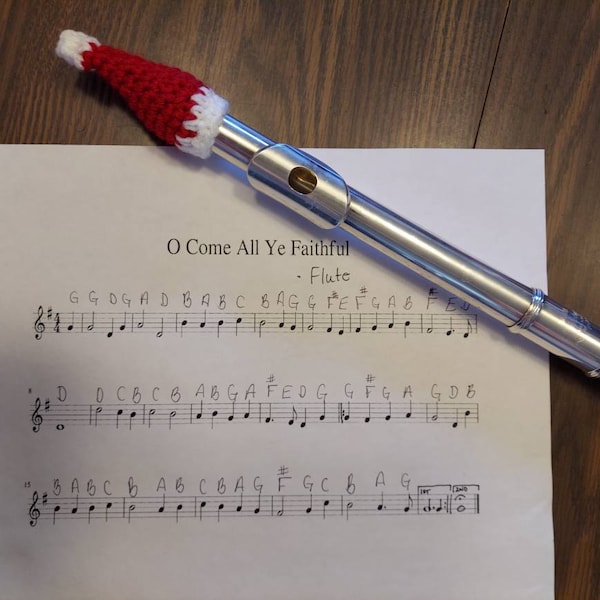 O Come All Ye Faithful
- Flute
G G D G A D B A B C B A G G F# E F# G A B F# E D
4 4
8
D D C B C B A B G A F# E D G G F# G A G D B
15
B A B C B A B C B A G F# G C B A G 1ST 2ND